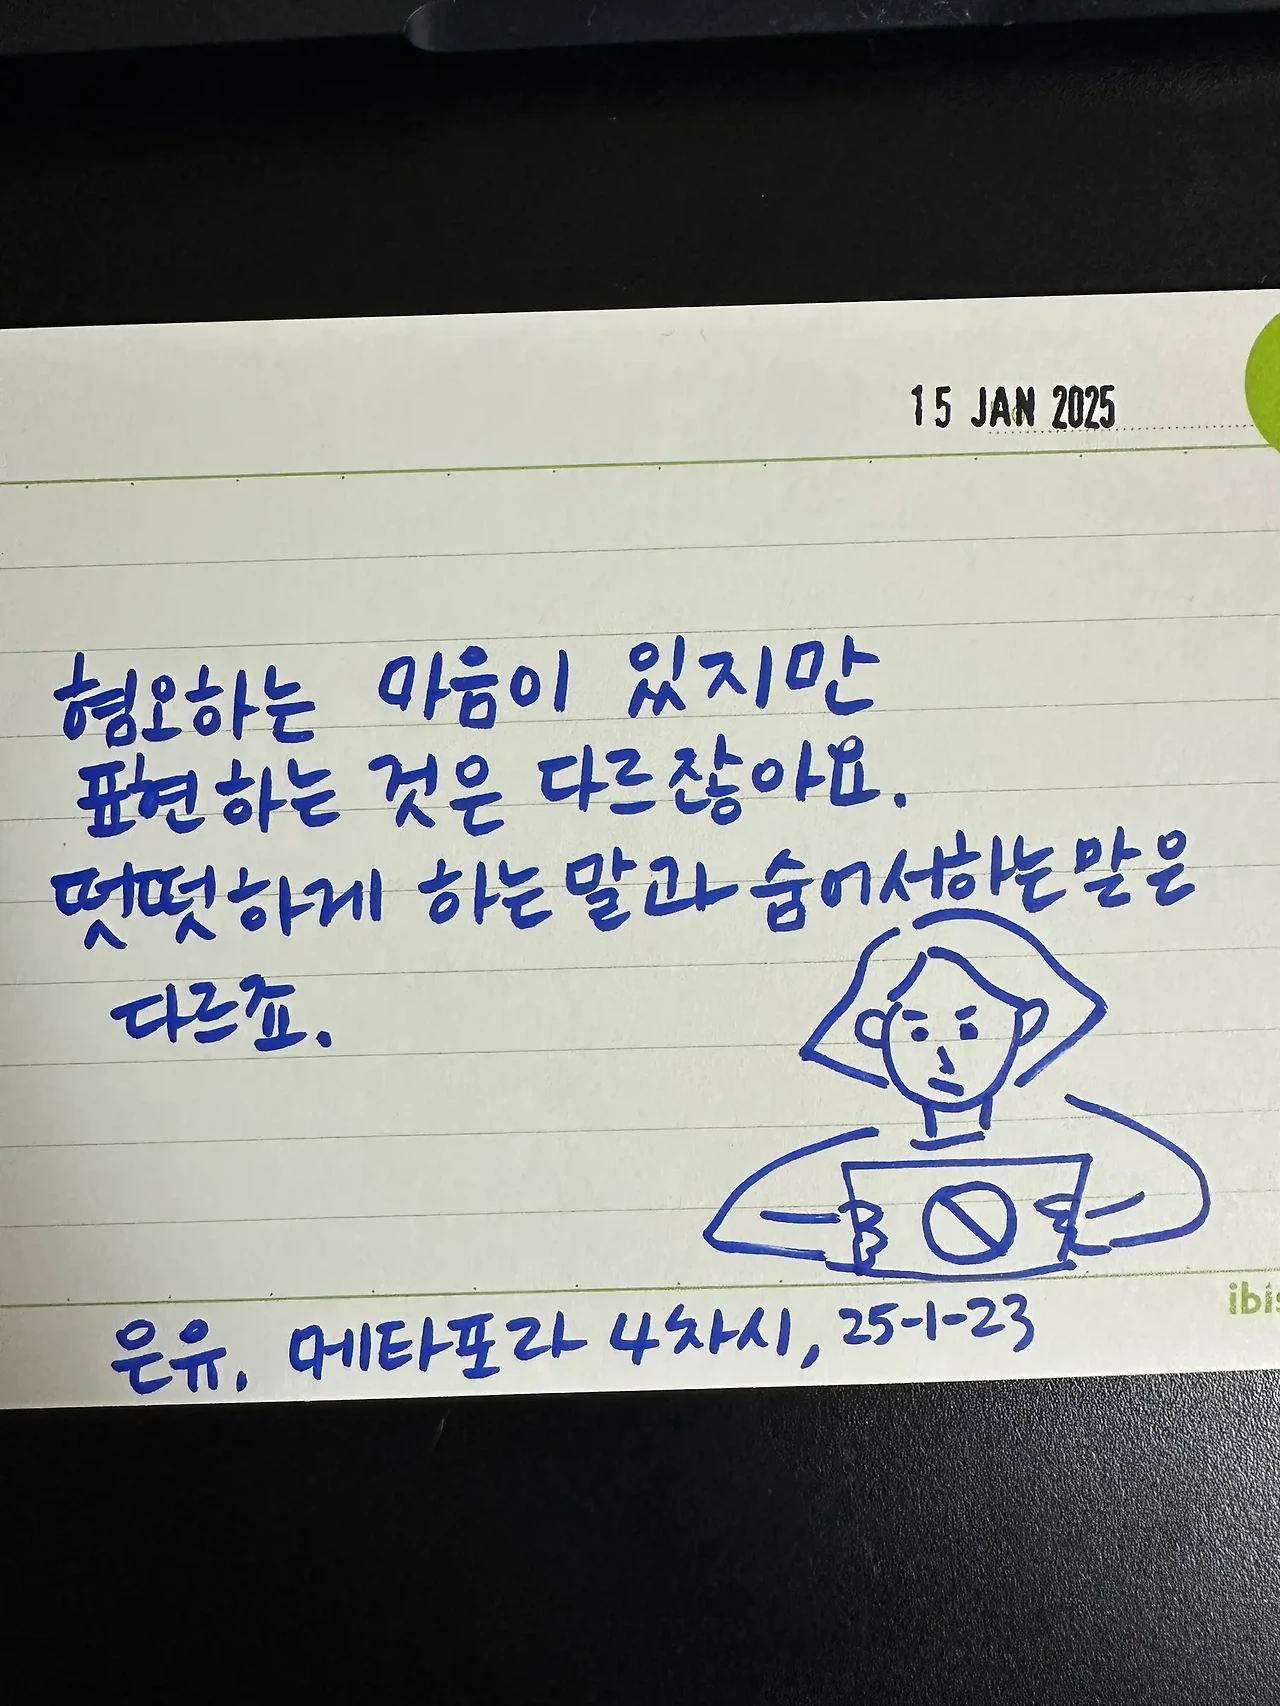 15 JAN 2025
혐오하는 마음이 있지만
표현하는 것은 다르잖아요.
떳떳하게 하는 말과 숨어서하는 말은
다르죠.
은유. 메타포라 4차시, 25-1-23